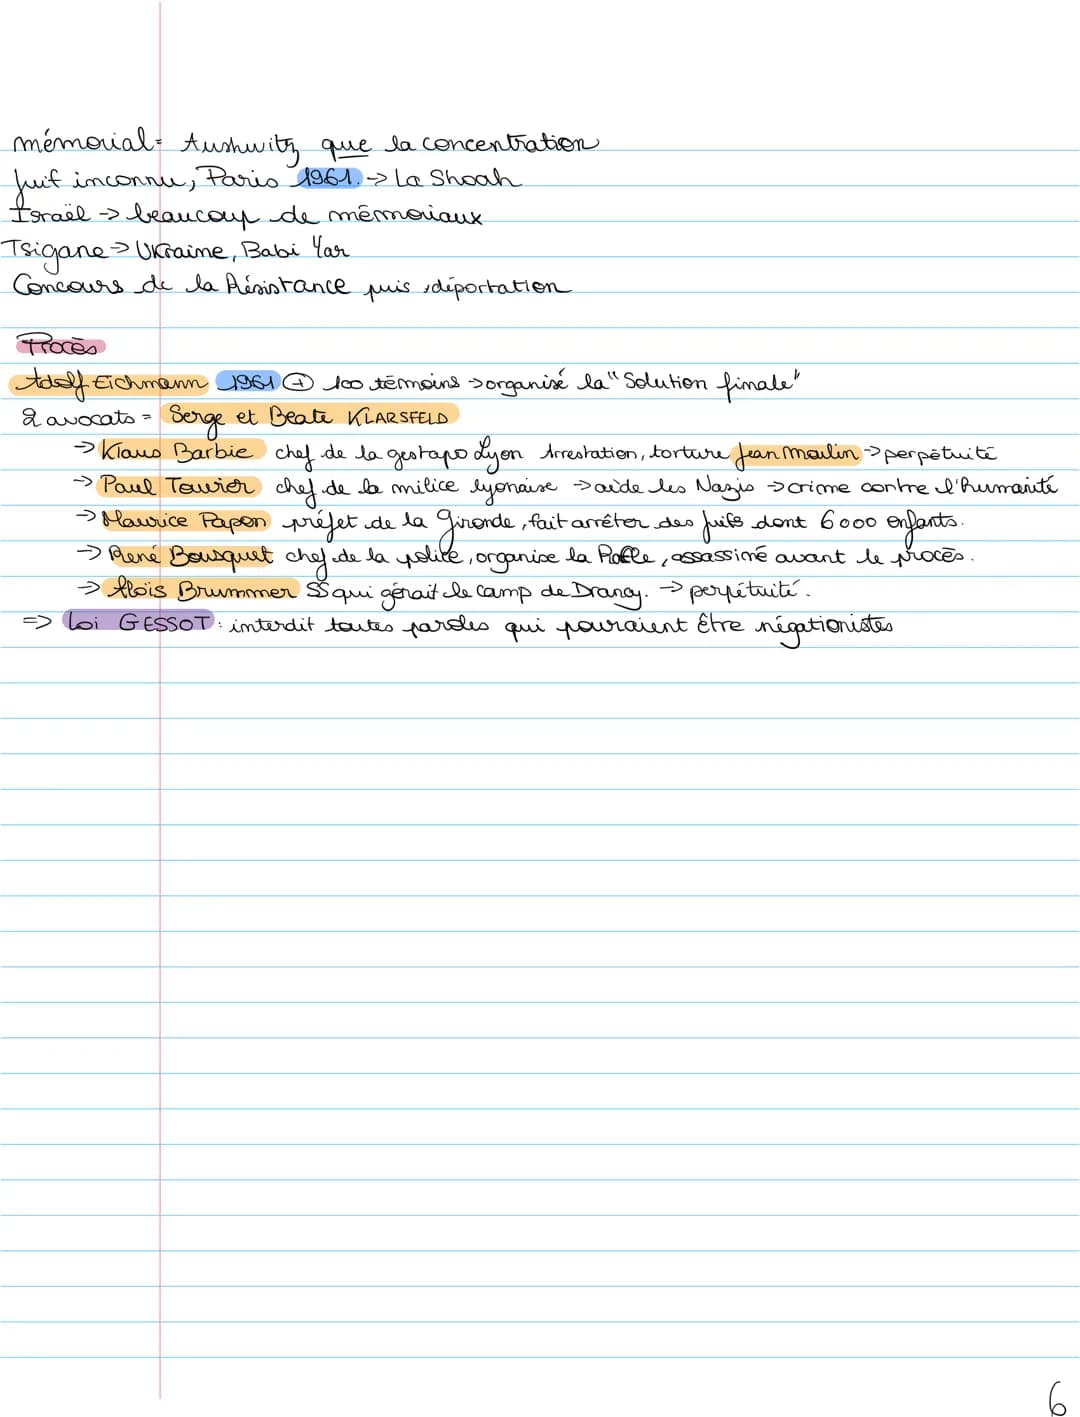 mémorial = Aushwitz que la concentration
Juif inconnu, Paris 1961. → La Shoah
Israël → beaucoup de mémoriaux
Tsigane → Ukraine, Babi Yar
Concours de la Résistance puis déportation
Procès
Adolf Eichmann 1961 ⊕ 100 témoins → organisé la "Solution finale"
2 avocats = Serge et Beate KLARSFELD
→ Klaus Barbie chef de la gestapo Lyon Arrestation, torture Jean Moulin → perpétuité
→ Paul Touvier chef de la milice lyonaise → aide les Nazis → crime contre l'humanité
→ Maurice Papon préfet de la Gironde, fait arrêter des juifs dont 6000 enfants.
→ René Bousquet chef de la police, organise la Rafle, assassiné avant le procès.
→ Aloïs Brummer SS qui gérait le camp de Drancy. → perpétuité.
=> Loi GESSOT : interdit toutes paroles qui pouraient être négationistes
6